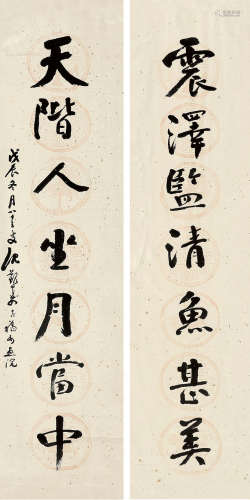 震澤監清魚甚美
天階人坐月當中
戊辰冬月